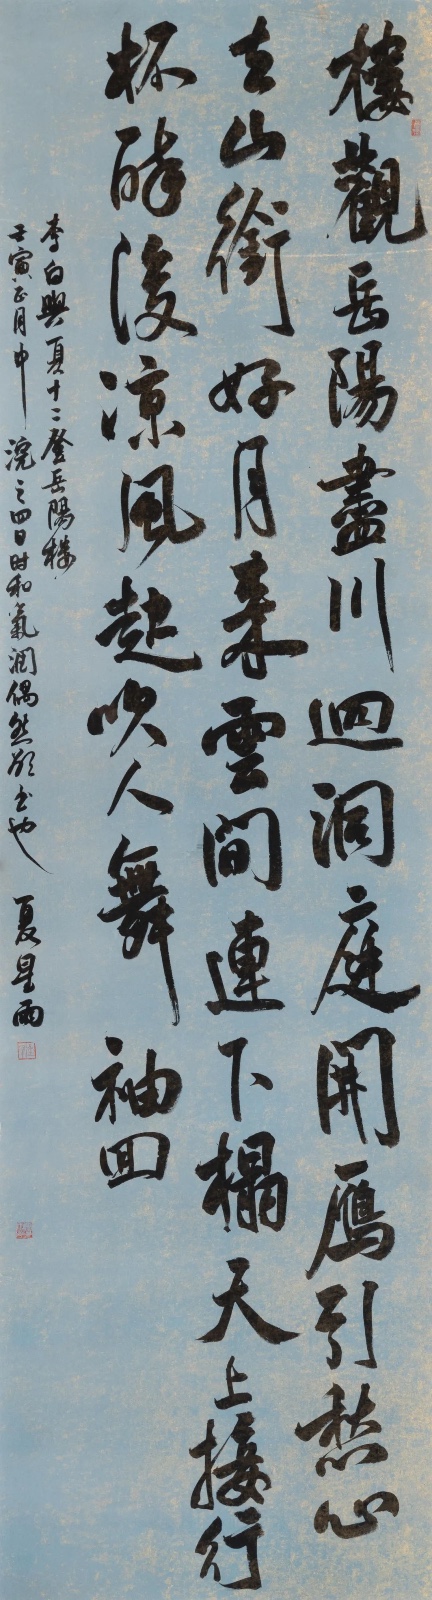 樓觀岳陽盡川迴洞庭開鴈引愁心
去山銜好月來雲間連下榻天上接行
杯醉後涼風起吹人舞袖回
李白與夏十二登岳陽樓
壬寅正月中浣之四日時和氣潤偶然欲書也 夏星雨